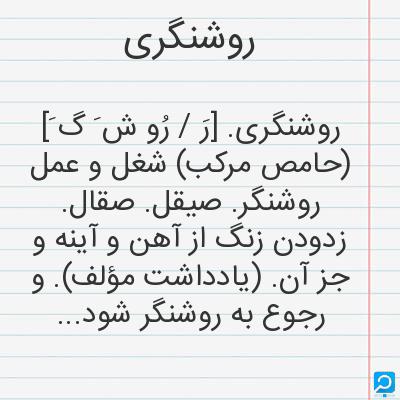 روشنگری
روشنگری. [رَ / رُو ش َ گ َ]
(حامص مرکب) شغل و عمل
روشنگر. صیقل. صقال.
زدودن زنگ از آهن و آینه و
جز آن. (یادداشت مؤلف). و
رجوع به روشنگر شود...